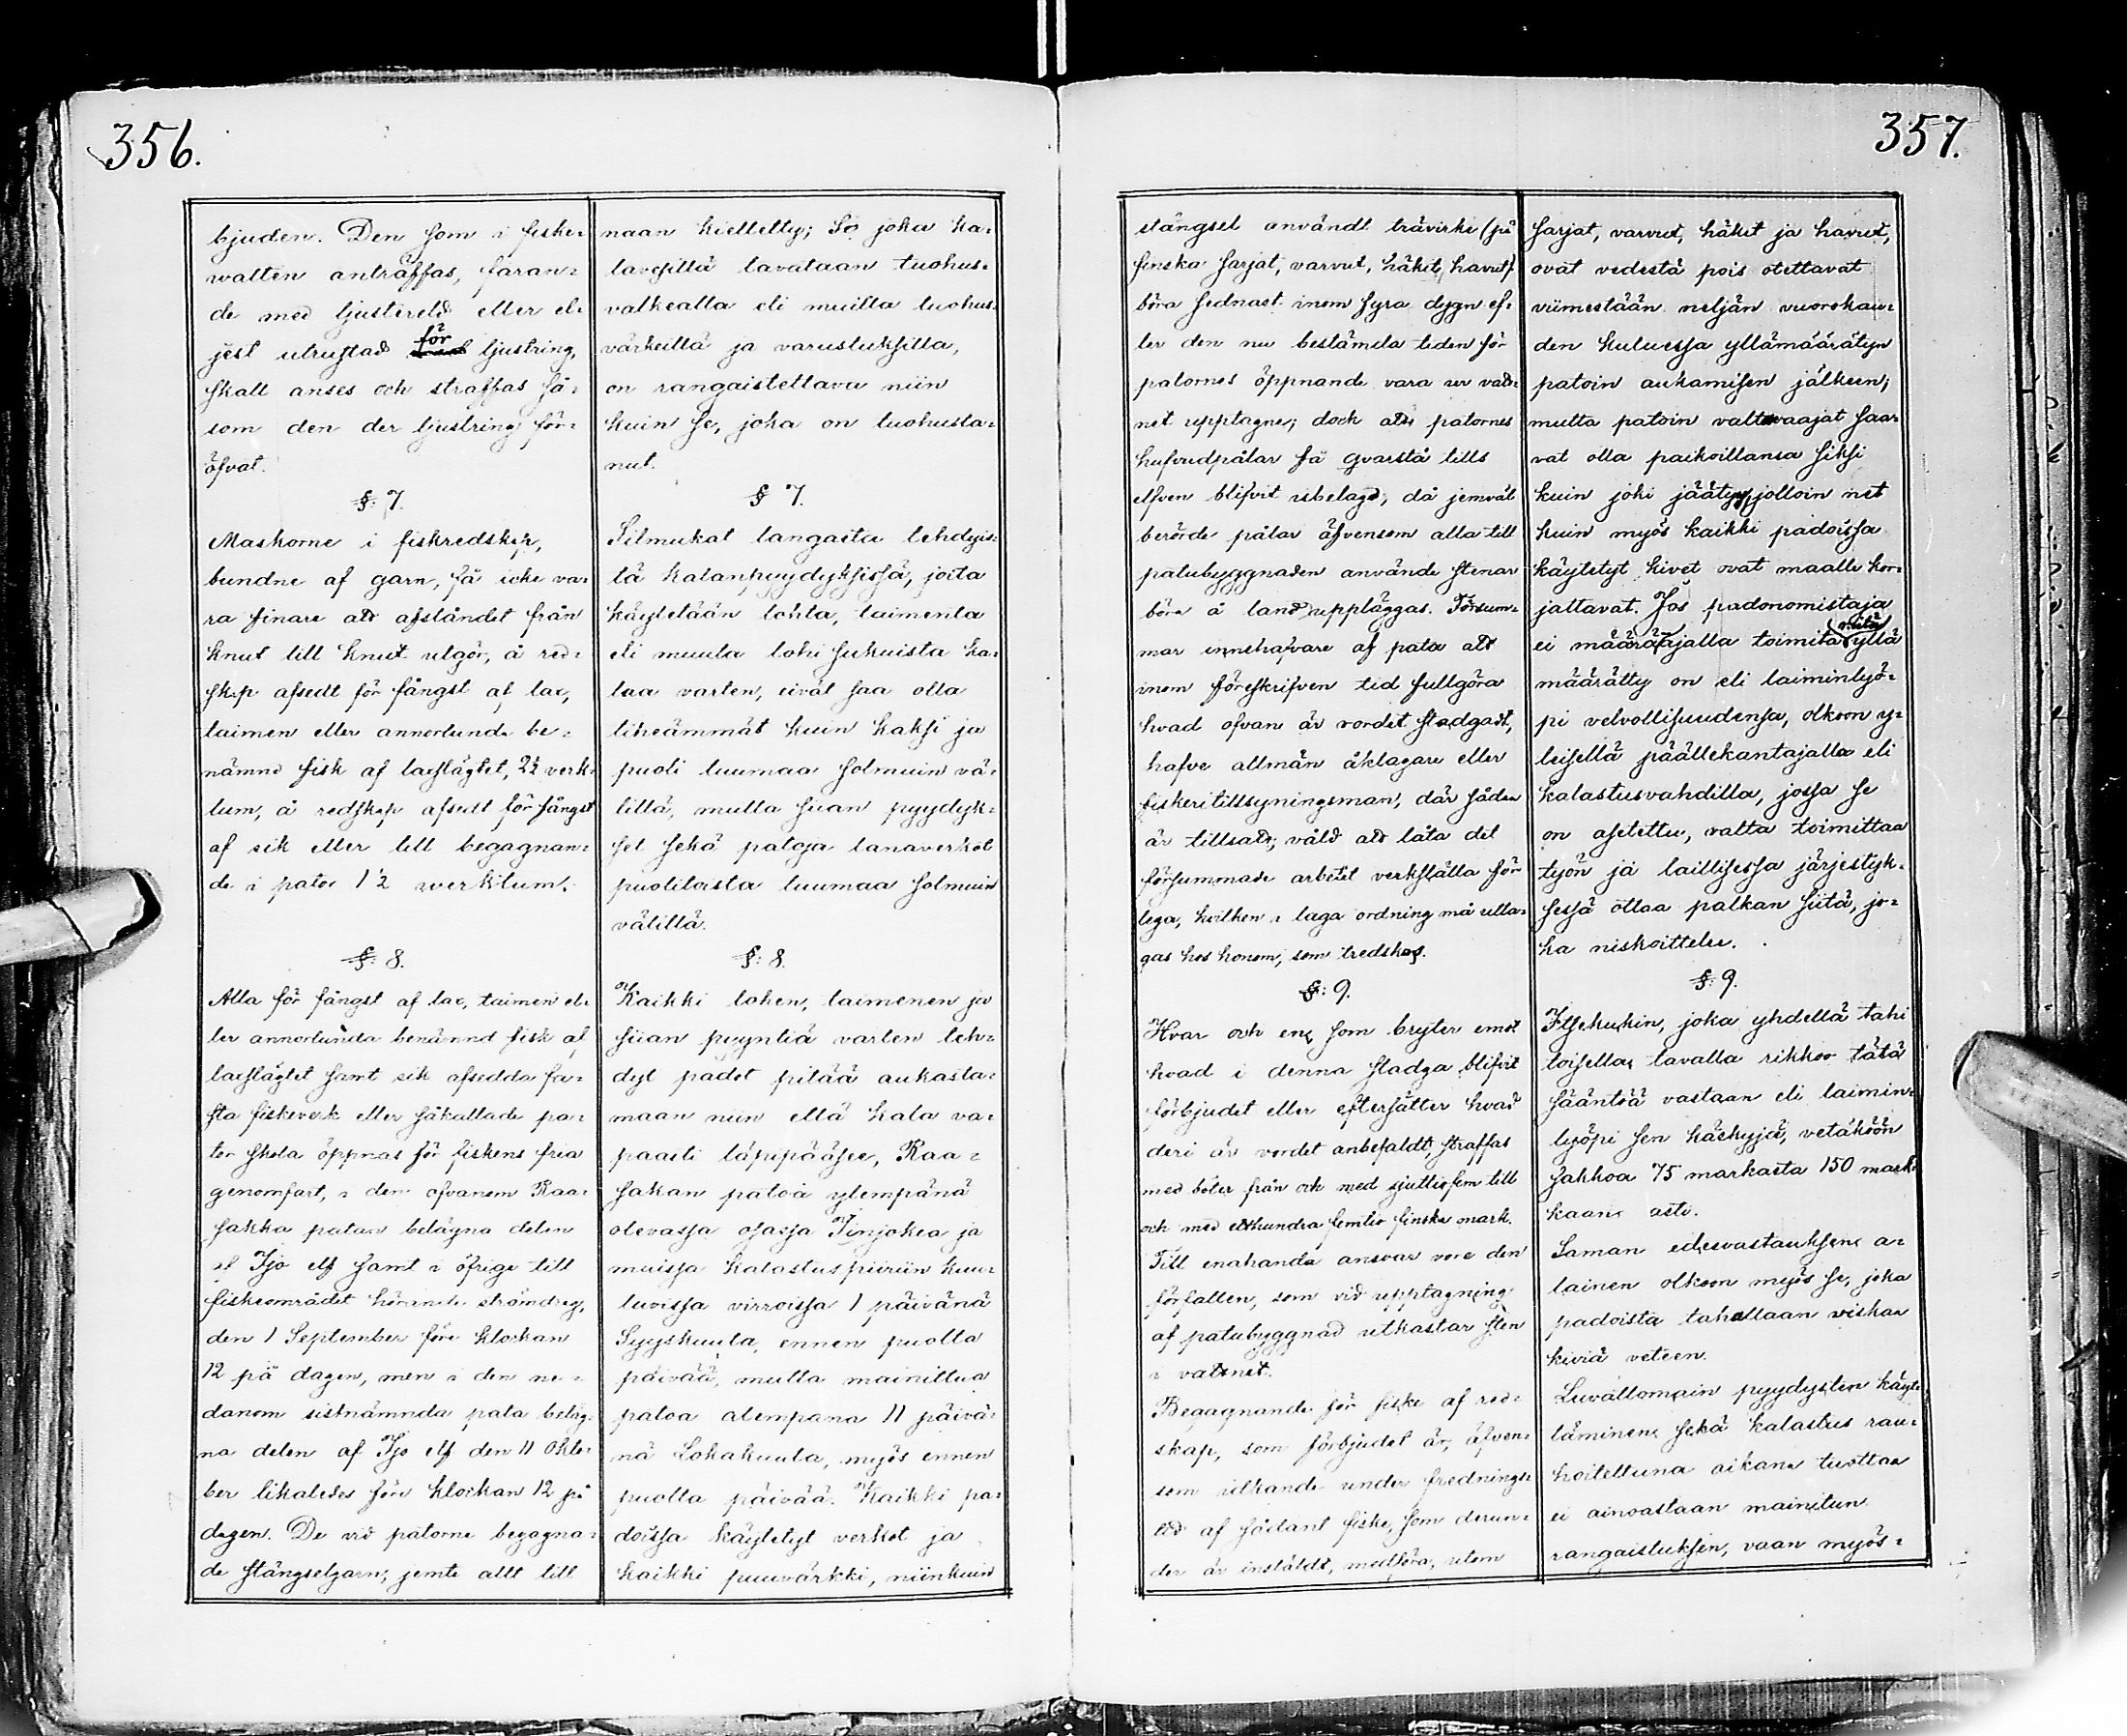 356.
bjuden. Den som i fiske-
vatten anträffas, faran-
de med ljustereld eller el-
jest utrustad för ljustring,
skall anses och straffas så-
som den der ljustring för-
öfvat.
§: 7.
Maskorne i fiskredskap,
bundne af garn, få icke va-
ra finare att afståndet från
knut till knut utgör, å red-
skap afsedt för fångst af lax,
taimen eller annorlunda be-
nämnd fisk af laxslägtet, 2½ verk-
tum, å redskap afsedt för fångst
af sik eller till begagnan-
de i pator 1½ verktum.
§: 8.
Alla för fångst af lax, taimen el-
ler annorlunda benämnd fisk af
laxslägtet samt sik afsedda fa-
sta fiskeverk eller såkallade pa-
tor skola öppnas för fiskens fria
genomfart, i den ofvanom Raa-
sakka patan belägna delen
af Ijo elf samt i öfriga till
fiskeområdet hörande strömdrag,
den 1 September före klockan
12 på dagen, men i den ne-
danom sistnämnda pata beläg-
na delen af Ijo elf den 11 Okto-
ber likaledes före klockan 12 på
dagen. De vid patorne begagna-
de stängselgarn, jemte allt till
naan kielletty; Se joka ka-
lavesillä tavataan tuohus-
valkealla eli muilla tuohus-
värkeillä ja varustuksilla,
on rangaistettava niin
kuin se, joka on tuohusta-
nut.
§ 7.
Silmukat langasta tehdyis-
sä kalanpyydyksissä, joita
käytetään lohta, taimenta
eli muuta lohi sukuista ka-
laa varten, eivät saa olla
tiheämmät kuin kaksi ja
puoli tuumaa solmuin vä-
lillä, mutta siian pyydyk-
set sekä patoja lanaverkot
puolitoista tuumaa solmuin
välillä.
§: 8.
Kaikki lohen, taimenen ja
siian pyyntiä varten teh-
dyt padot pitää aukasta-
maan niin että kala va-
paasti läpipääsee, Raa-
sakan patoa ylempänä
olevassa osassa Iinjokea ja
muissa kalastuspiiriin kuu-
luvissa virroissa 1 päivänä
Syyskuuta, ennen puolta
päivää, mutta mainittua
patoa alempana 11 päivä-
nä Lokakuuta, myös ennen
puolta päivää. Kaikki pa-
doissa käytetyt verkot ja
kaikki puuvärkki, niinkuin
357.
stängsel användt trävirke (på
finska sarjat, varvut, häkit, havut)
böra sednast inom fyra dygn ef-
ter den nu bestämda tiden för
patornes öppnande vara ur vatt-
net upptagne; dock att patornes
hufvudpålar få qvarstå tills
elfven blifvit isbelagd; då jemväl
berörde pålar äfvensom alla till
patubyggnaden använde stenar
böra å land uppläggas. Försum-
mar innehafvare af pata att
inom föreskrifven tid fullgöra
hvad ofvan är vordet stadgadt,
hafve allmän åklagare eller
fiskeritillsyningsman, där sådan
är tillsatt, våld att låta det
försummade arbetet verkställa för
lega, hvilken i laga ordning må utta-
gas hos honom, som tredskas.
§: 9.
Hvar och en som bryter emot
hvad i denna stadga blifvit
förbjudet eller eftersätter hvad
deri är vordet anbefaldt, straffas
med böter från och med sjuttiofem till
och med etthundra femtio finska mark.
Till enahanda ansvar vare den
förfallen, som vid upptagning
af patubyggnad utkastar sten
i vattnet.
Begagnande för fiske af red-
skap, som förbjudet är, äfven-
som idkande under frednings-
tid af sådant fiske, som derun-
der är instäldt, medföra, utom
sarjat, varvut, häkit ja havut,
ovat vedestä pois otettavat
viimestään neljän vuorokau-
den kuluessa yllämäärätyn
patoin aukamisen jälkeen;
mutta patoin valtavaajat saa-
vat olla paikoillansa siksi
kuin joki jäätyy, jolloin net
kuin myös kaikki padoissa
käytetyt kivet ovat maalle kor-
jattavat. Jos padonomistaja
ei määräajalla toimita mitä yllä
määrätty on eli laiminlyö-
pi velvollisuudensa, olkoon y-
leisellä päällekantajalla eli
kalastusvahdilla, jossa se
on asetettu, valta toimittaa
työn ja laillisessa järjestyk-
sessä ottaa palkan siitä, jo-
ka niskoittelee.
§: 9.
Itsekukin, joka yhdellä tahi
toisella tavalla rikkoo tätä
sääntöä vastaan eli laimin-
lyöpi sen käskyjä, vetäköön
sakkoa 75 markasta 150 mark-
kaan asti.
Saman edesvastauksen a-
lainen olkoon myös se, joka
padoista tahallaan viskaa
kiviä veteen.
Luvattomain pyydysten käyt-
täminen sekä kalastus rau-
hoitettuna aikana tuottaa
ei ainoastaan mainitun
rangaistuksen, vaan myös-